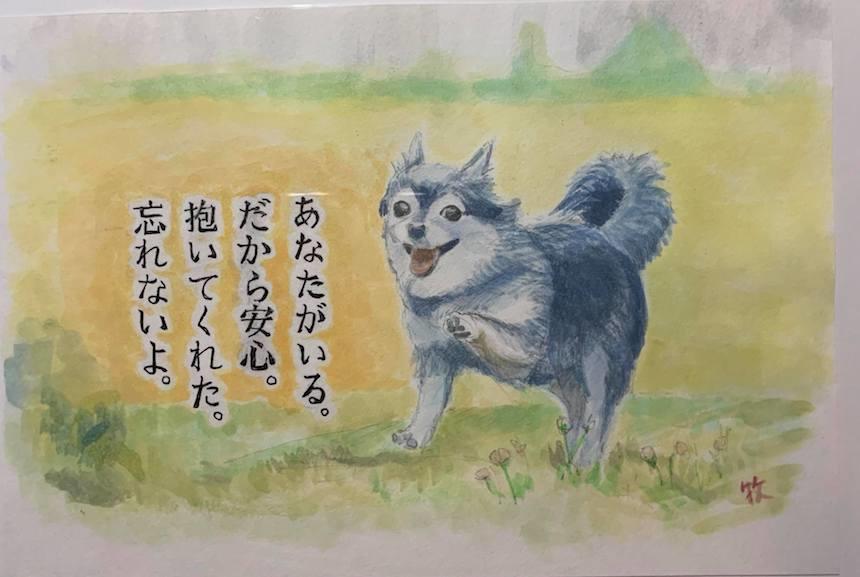 あなたがいる。
だから安心。
抱いてくれた。
忘れないよ。
牧